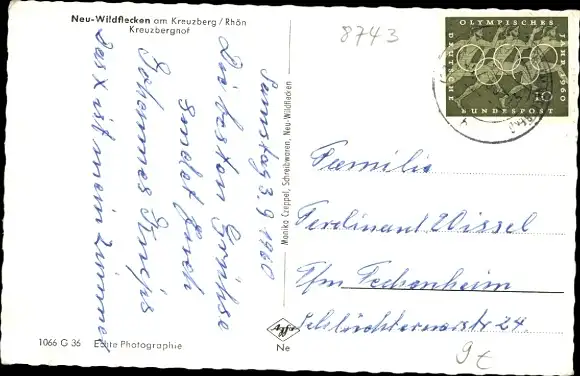 Neu-Wildflecken am Kreuzberg/Rhön
Kreuzberghof
8743
OLYMPISCHES
JAHR 1960
DEUTSCHE
BUNDESPOST
10
Samstag 3.9.1960
Die besten Grüsse
sendet Euch
Johannes
Das X ist mein Zimmer
Monika Czeppel, Schreibwaren, Neu-Wildflecken
Familie
Ferdinand Wissel
Ffm Fechenheim
Schlüchternerstr 24.
Agfa
Ne
1066 G 36 Echte Photographie